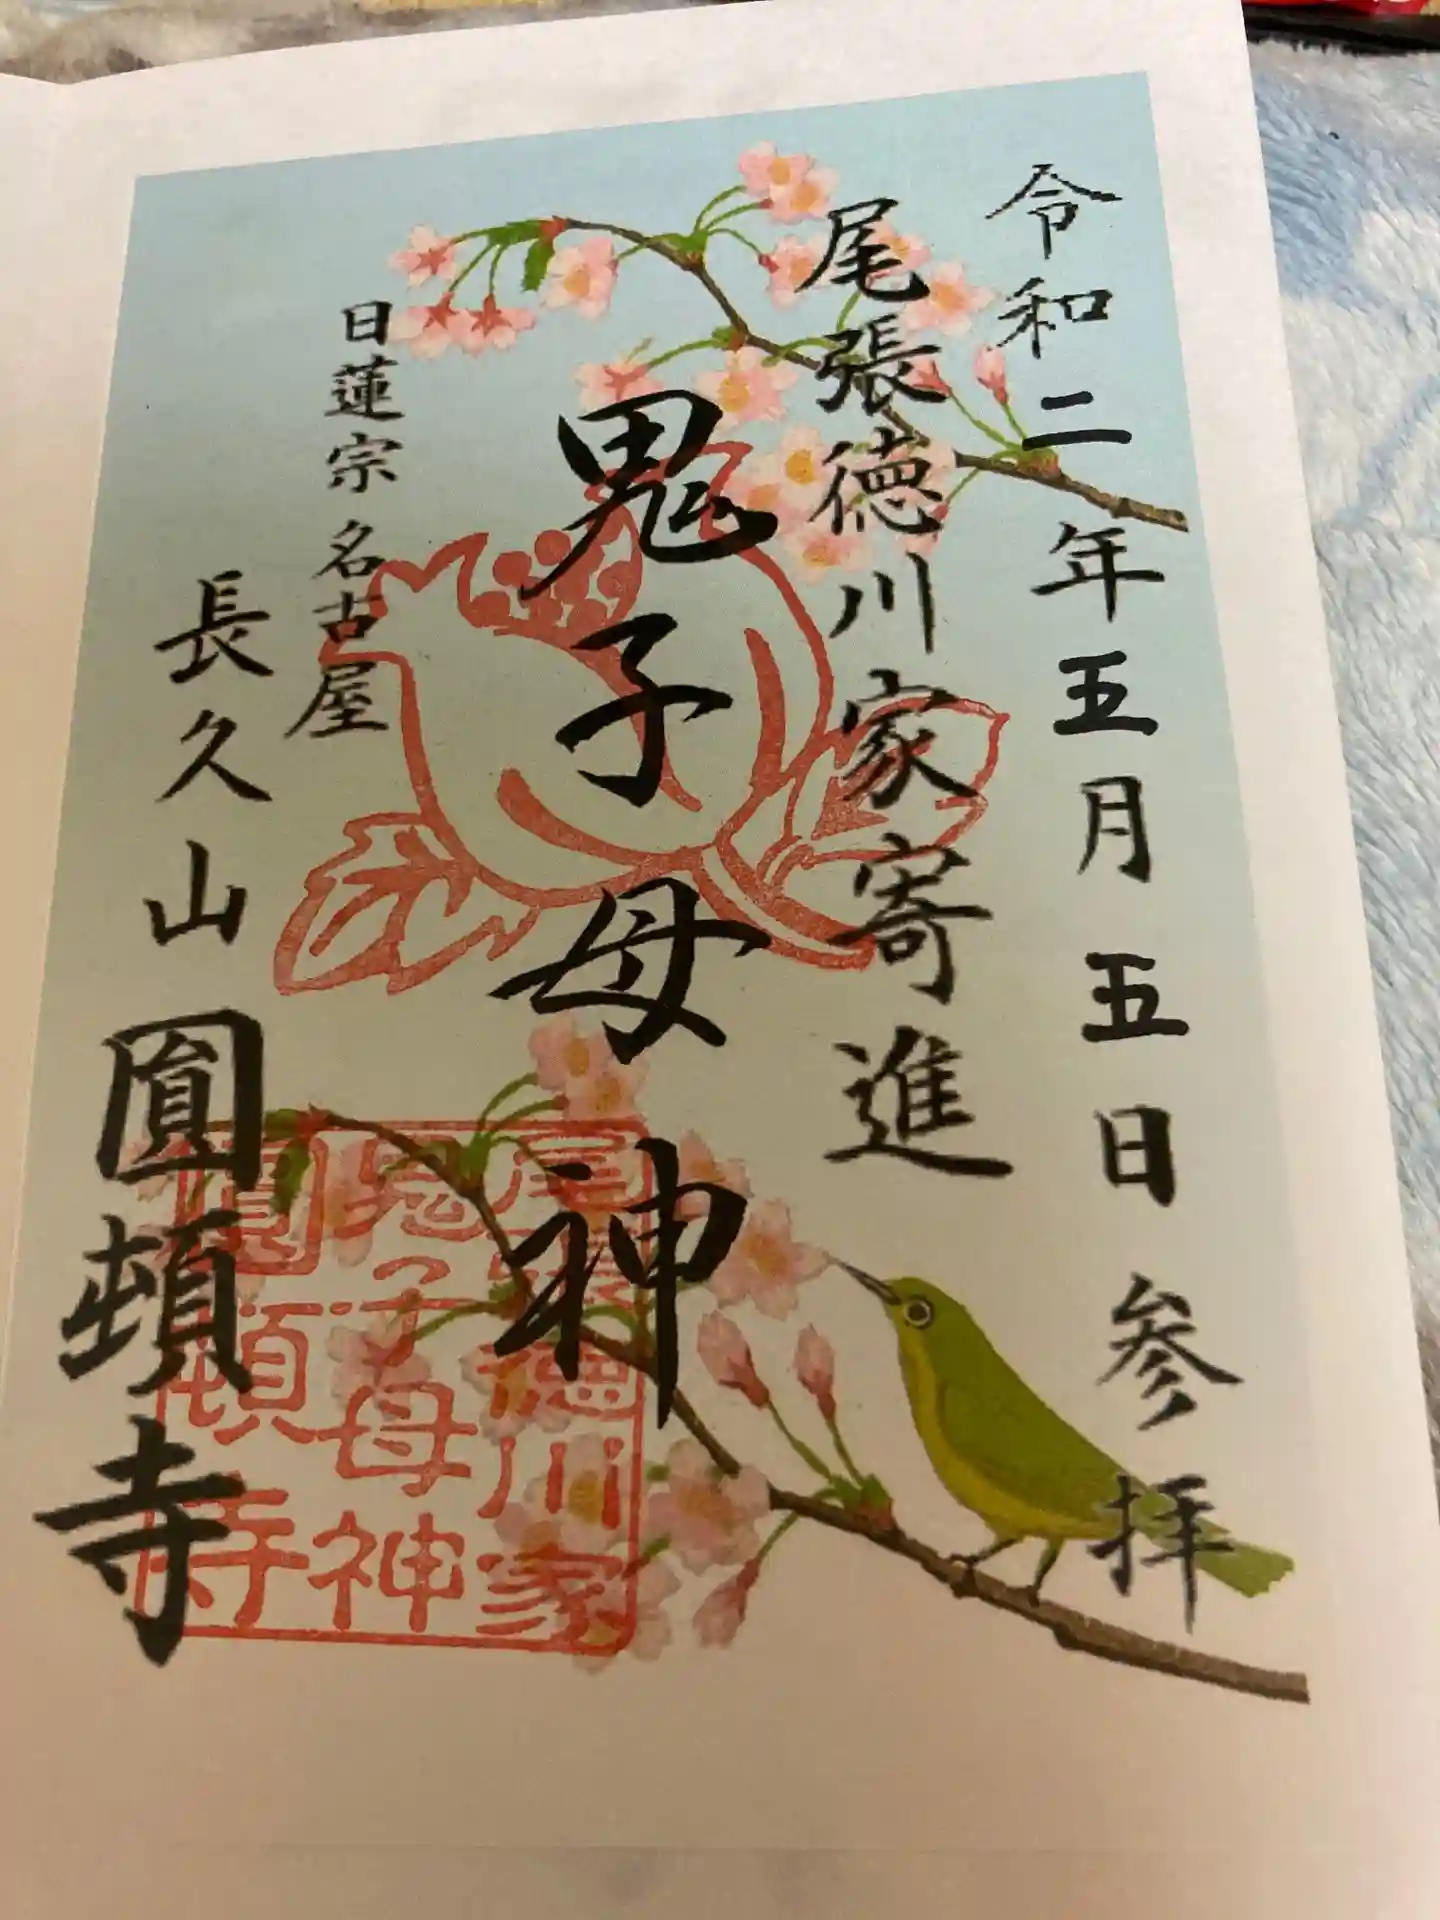 令和二年五月五日 参拝
尾張徳川家寄進
鬼子母神
日蓮宗 名古屋
長久山 圓頓寺
尾張徳川家
鬼子母神
圓頓寺